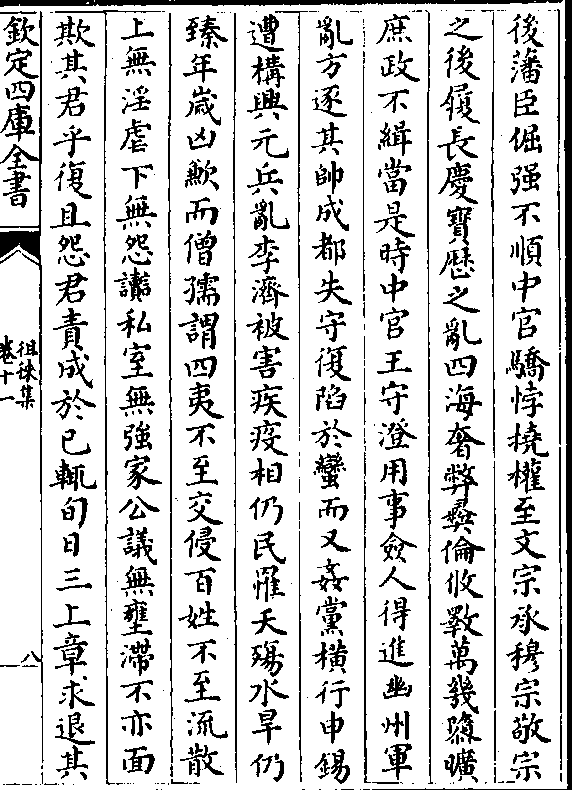 後藩臣倔强不順中官驕悖撓權至文宗承穆宗敬宗
之後履長慶寶厯之亂四海奢弊彛倫攸斁萬幾隳曠
庶政不緝當是時中官王守澄用事僉人得進幽州軍
亂方逐其帥成都失守復陷於蠻而又姦黨橫行申錫
遭構興元兵亂李濟被害疾疫相仍民罹夭殤水旱仍
臻年嵗凶歉而僧孺謂四夷不至交侵百姓不至流散
上無淫虐下無怨讟私室無強家公議無壅滯不亦面
欺其君乎復且怨君責成於已輒旬日三上章求退其
欽定四庫全書
徂徠集
卷十一
八